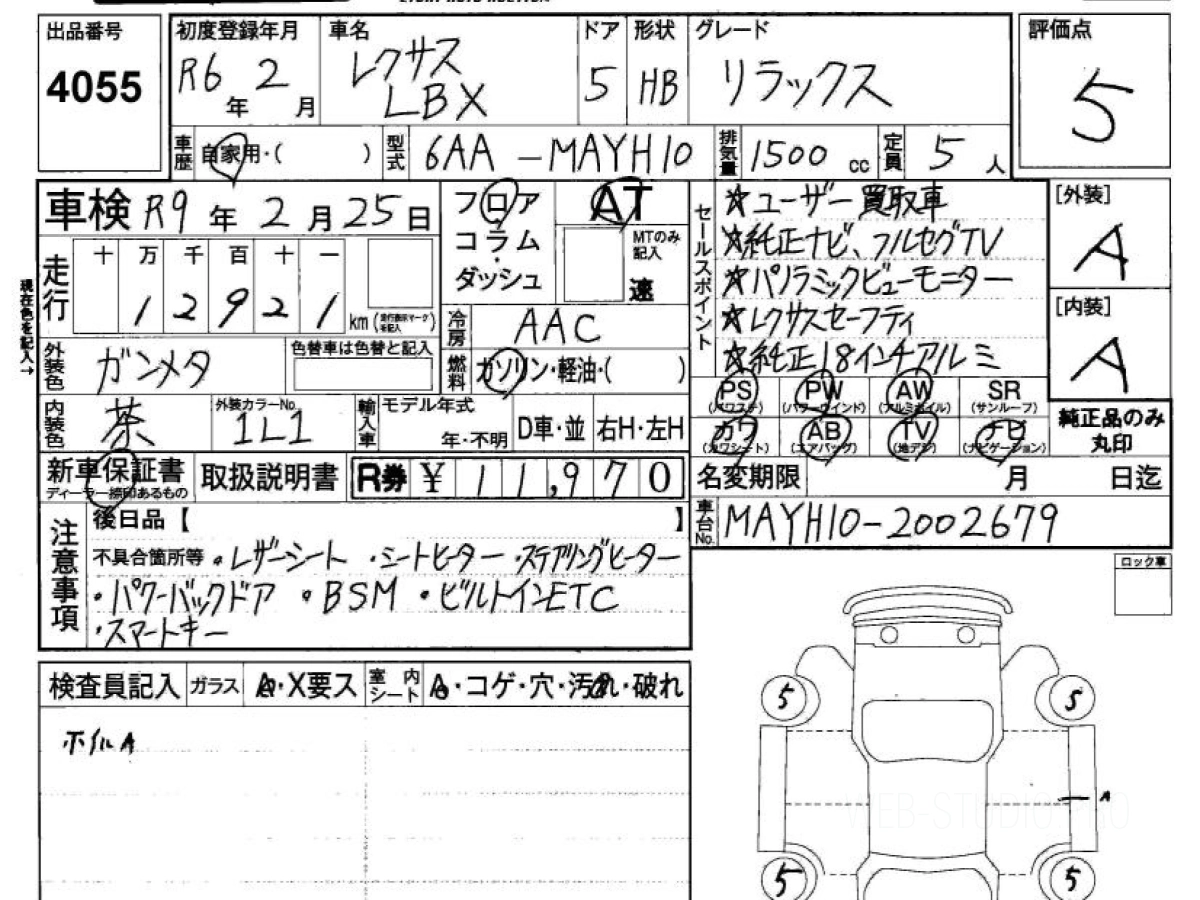 出品番号 4055
初度登録年月 R6年 2月
車名 レクサス LBX
ドア 5
形状 HB
グレード リラックス
評価点 5
車歴 自家用・( )
型式 6AA-MAYH10
排気量 1500 cc
定員 5人
車検 R9年 2月 25日
フロア コラム・ダッシュ
AT
MTのみ記入 速
走行 十万千百十一
12921 km (走行表示マークを記入)
現在色を記入→
冷房 AAC
外装色 ガンメタ
色替車は色替と記入
燃料 ガソリン・軽油・( )
内装色 茶
外装カラーNo. 1L1
輸入車 モデル年式 年・不明
D車・並 右H・左H
新車保証書 ディーラー捺印あるもの
取扱説明書
R券 ¥11,970
セールスポイント
☆ユーザー買取車
☆純正ナビ、フルセグTV
☆パノラミックビューモニター
☆レクサスセーフティ
☆純正18インチアルミ
[外装] A
[内装] A
PS (パワステ) PW (パワーウインド) AW (アルミホイル) SR (サンルーフ)
カワ (カワシート) AB (エアバッグ) TV (地デジ) ナビ (ナビゲーション)
純正品のみ丸印
名変期限 月 日迄
車台No. MAYH10-2002679
注意事項
後日品【 】
不具合箇所等 ・レザーシート ・シートヒーター ・ステアリングヒーター
・パワーバックドア ・BSM ・ビルトインETC
・スマートキー
ロック車
検査員記入 ガラス A・X要ス 室内シート A・コゲ・穴・汚れ・破れ
ホイルA
5 5
A
5 5
WEB-STUDIO.PRO